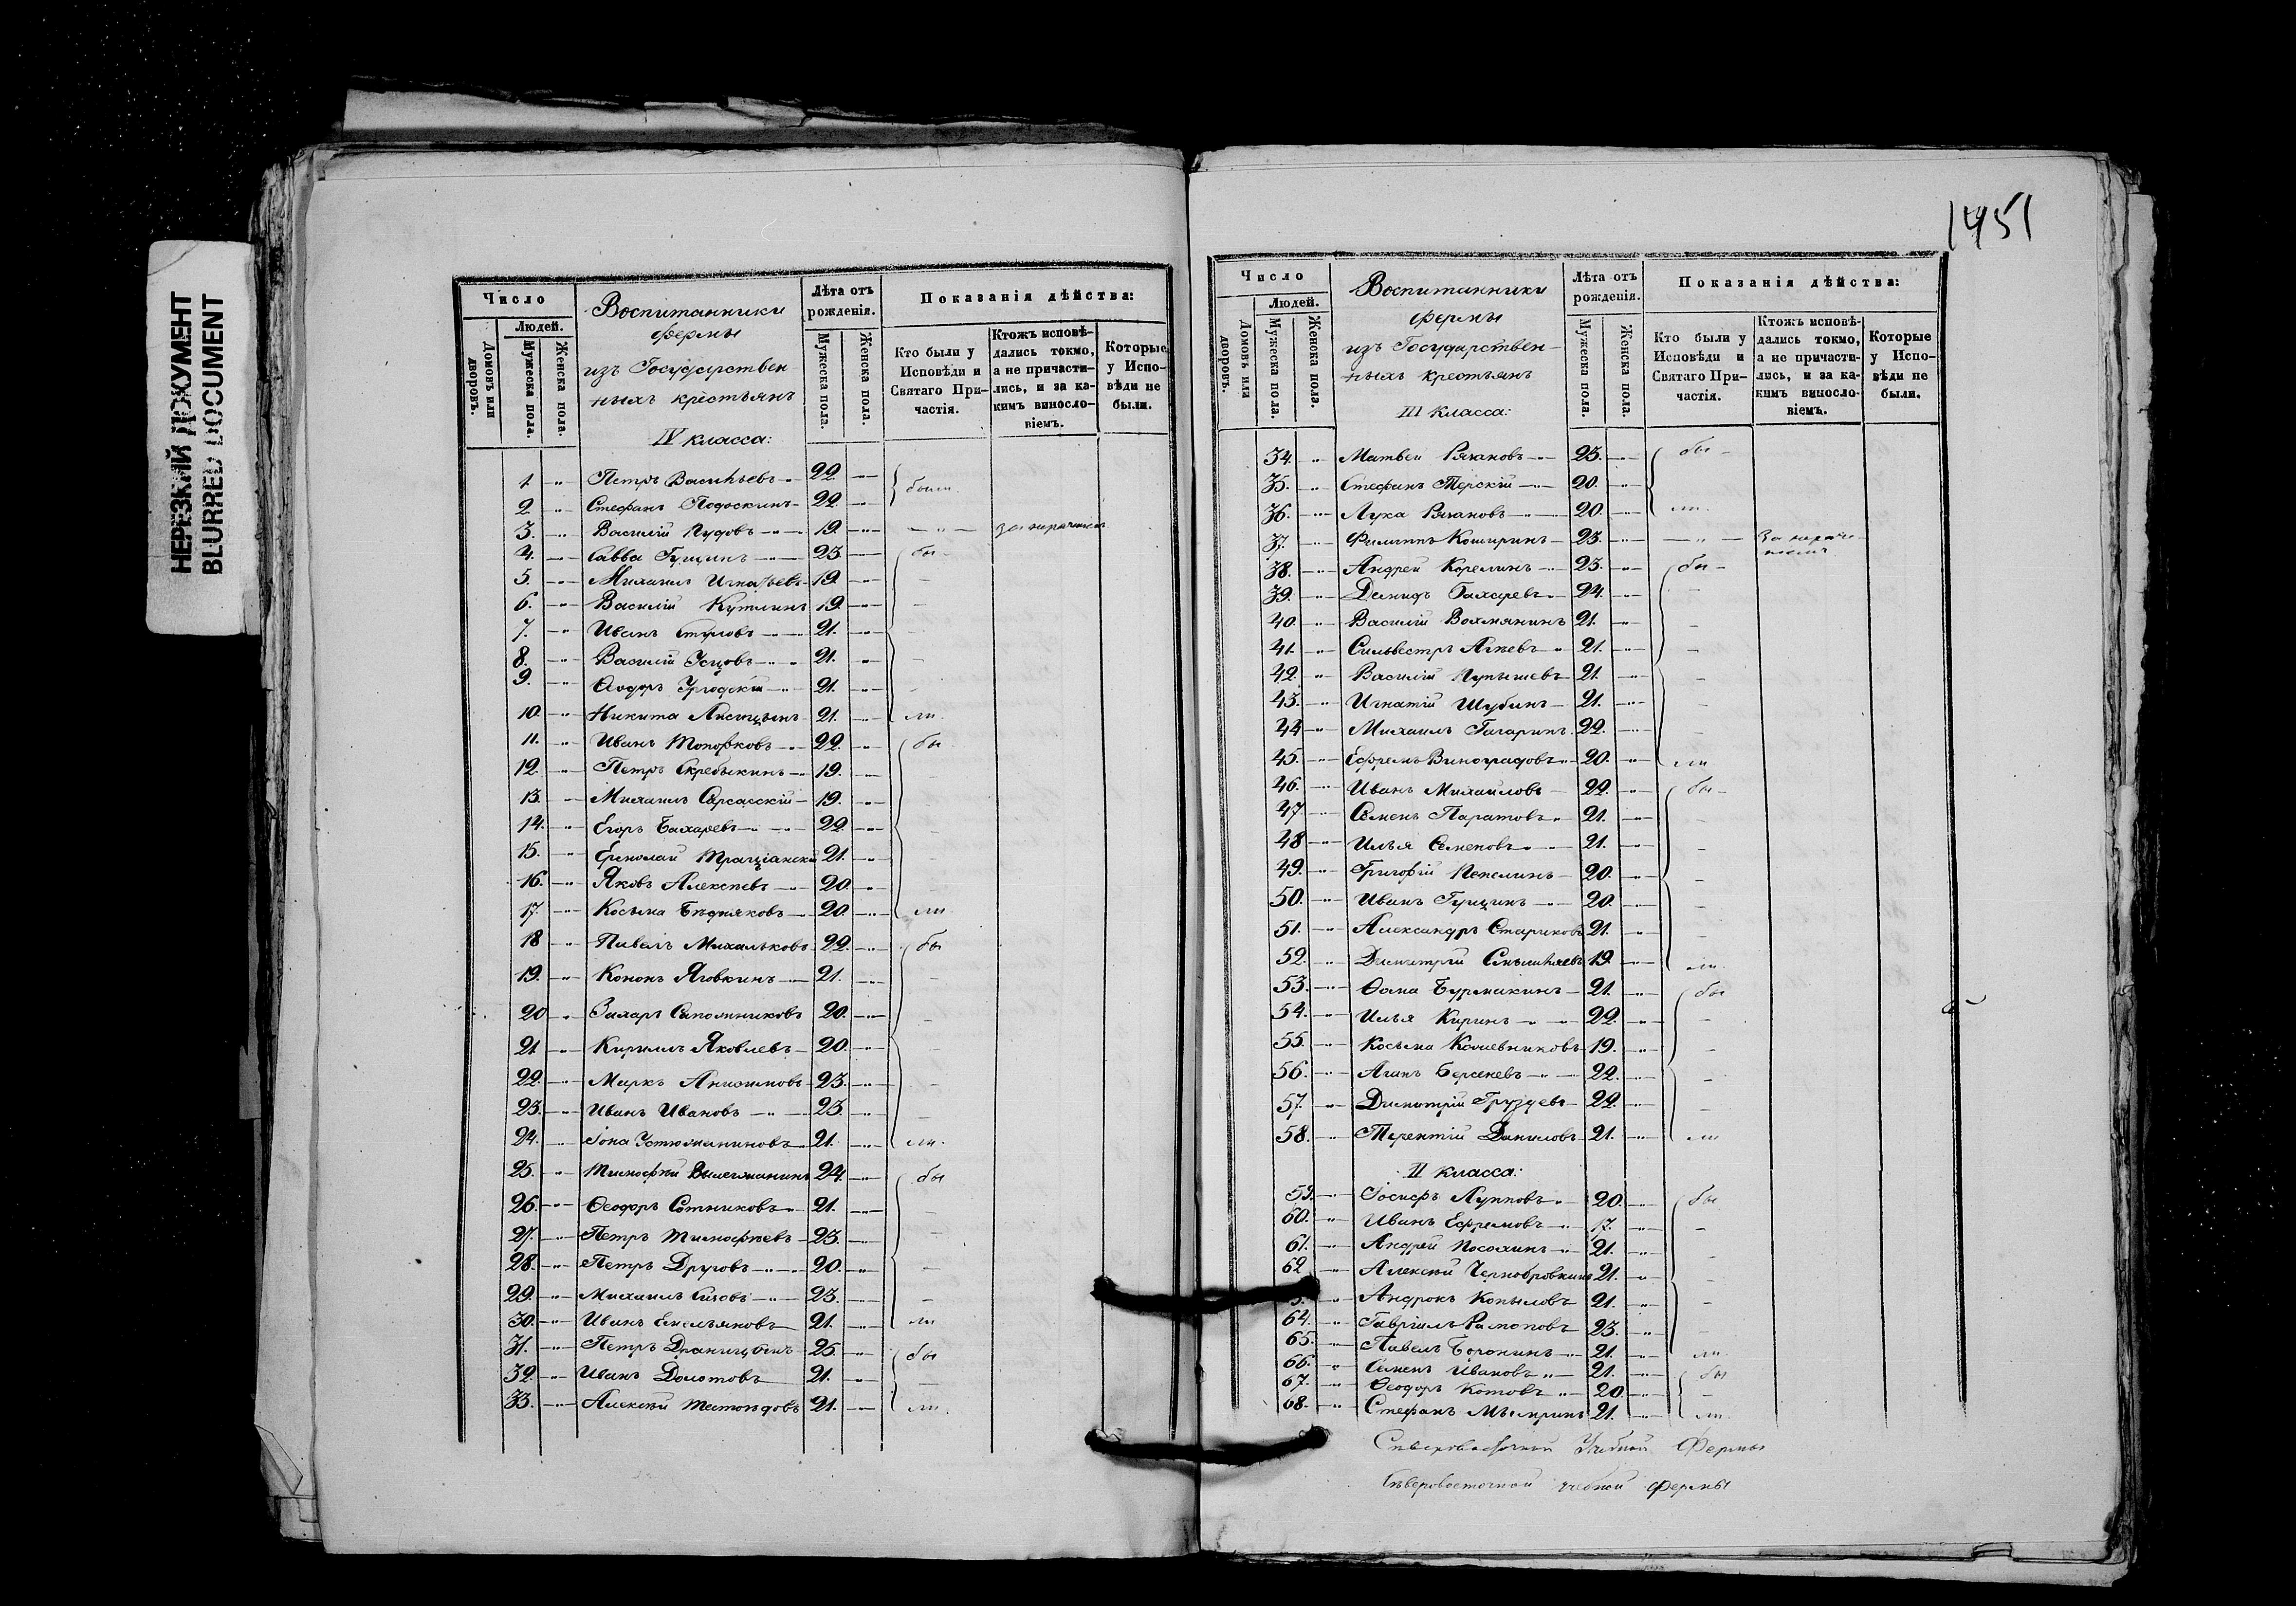 НЕРЕЗКИЙ ДОКУМЕНТ
BLURRED DOCUMENT
Число
Людей.
Домовъ или дворовъ.
Мужеска пола.
Женска пола.
Воспитанники
фермы
изъ Государствен
ныхъ крестьянъ
IV класса:
Лѣта отъ рожденія.
Мужеска пола.
Женска пола.
Показанія дѣйства:
Кто были у Исповѣди и Святаго Причастія.
Ктожъ исповѣдались токмо, а не причастились, и за какимъ винословіемъ.
Которые у Исповѣди не были.
1. Петръ Васильевъ 22 были
2. Стефанъ 22.
3. Василій Пудовъ 19.
4. Савва Гущинъ 23. бы
5. Михаилъ Игнатьевъ 19.
6. Василій Кутлинъ 19.
7. Иванъ 21.
8. Василій 21.
9. Ѳеодоръ 21.
10. Никита 21. ли.
11. Иванъ Топорковъ 22. бы
12. Петръ Скребыкинъ 19.
13. Михаилъ 19.
14. Егоръ Бахаревъ 22.
15. 21.
16. Яковъ Алексѣевъ 20.
17. Косьма Бѣдняковъ 20. ли.
18 Павелъ Михальковъ 22. бы
19. Кононъ Яговкинъ 21.
20 Захаръ Сапожниковъ 20.
21. Кириллъ Яковлевъ 20.
22. Маркъ Анисимовъ 23.
23. Иванъ Ивановъ 23.
24. Іона 21. ли.
25. Тимофѣй 24. бы
26. Ѳеодоръ Сотниковъ 21.
27. Петръ Тимофѣевъ 23.
28. Петръ Друговъ 20.
29. Михаилъ 23.
30. Иванъ Емельяновъ 21. ли
31. Петръ 25. бы
32. Иванъ Долотовъ 21.
33. Алексѣй 21. ли.
1451
Число
Людей.
Домовъ или дворовъ.
Мужеска пола.
Женска пола.
Воспитанники
фермы
изъ Государствен-
ныхъ крестьянъ
III класса:
Лѣта отъ рожденія.
Мужеска пола.
Женска пола.
Показанія дѣйства:
Кто были у Исповѣди и Святаго Причастія.
Ктожъ исповѣдались токмо, а не причастились, и за какимъ винословіемъ.
Которые у Исповѣди не были.
34. Матвей 23. бы
35. Стефанъ Терскій 20.
36. Лука 20. ли.
37. Филиппъ Коширинъ 23.
38. Андрей Корелинъ 23. бы
39. Демидъ Бахаревъ 24.
40. Василій Вохмянинъ 21.
41. Сильвестръ 21.
42. Василій Пупышевъ 21.
43. Игнатій Шубинъ 21.
44 Михаилъ Гагаринъ 22.
45. Ефремъ Виноградовъ 20. ли
46. Иванъ Михайловъ 22. бы
47 Семенъ Паратовъ 21.
48 Илья Семеновъ 21.
49. Григорій Пепелинъ 20.
50. Иванъ Гущинъ 20.
51. Александръ Стариковъ 21.
52. Димитрій 19. ли.
53. Ѳома Бурмакинъ 21. бы
54. Илья Киринъ 22.
55. Косьма Кожевниковъ 19.
56. Берсеневъ 22.
57. Димитрій Груздевъ 22.
58. Терентій Даниловъ 21. ли
II класса:
59. Іосифъ Лупповъ 20. бы
60. Иванъ Ефремовъ 17.
61. Андрей Посохинъ 21.
62 Алексѣй Чернобровкинъ 21.
3. Андронъ Копыловъ 21.
64. Гавріилъ 23.
65. Павелъ 21. ли.
66. Семенъ Ивановъ 21. бы
67. Ѳеодоръ Котовъ 20.
68. Стефанъ 21. ли.
Сѣверовосточной Учебной Фермы
Сѣверовосточной учебной фермы